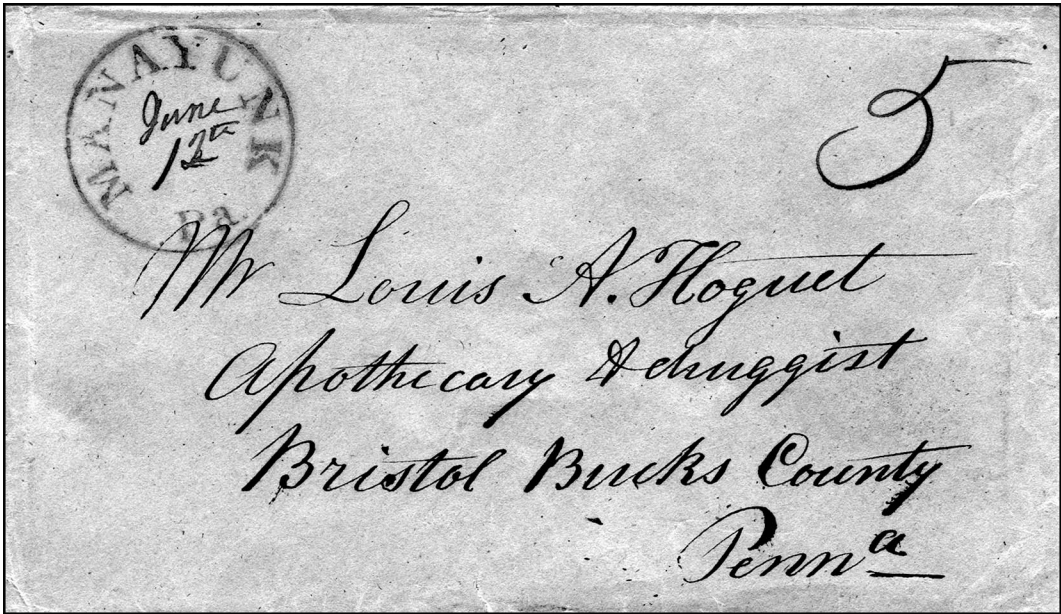 MANAYUNK
June
12th
Pa.
5
Mr Louis A. Hoguet
Apothecary & druggist
Bristol Bucks County
Penna